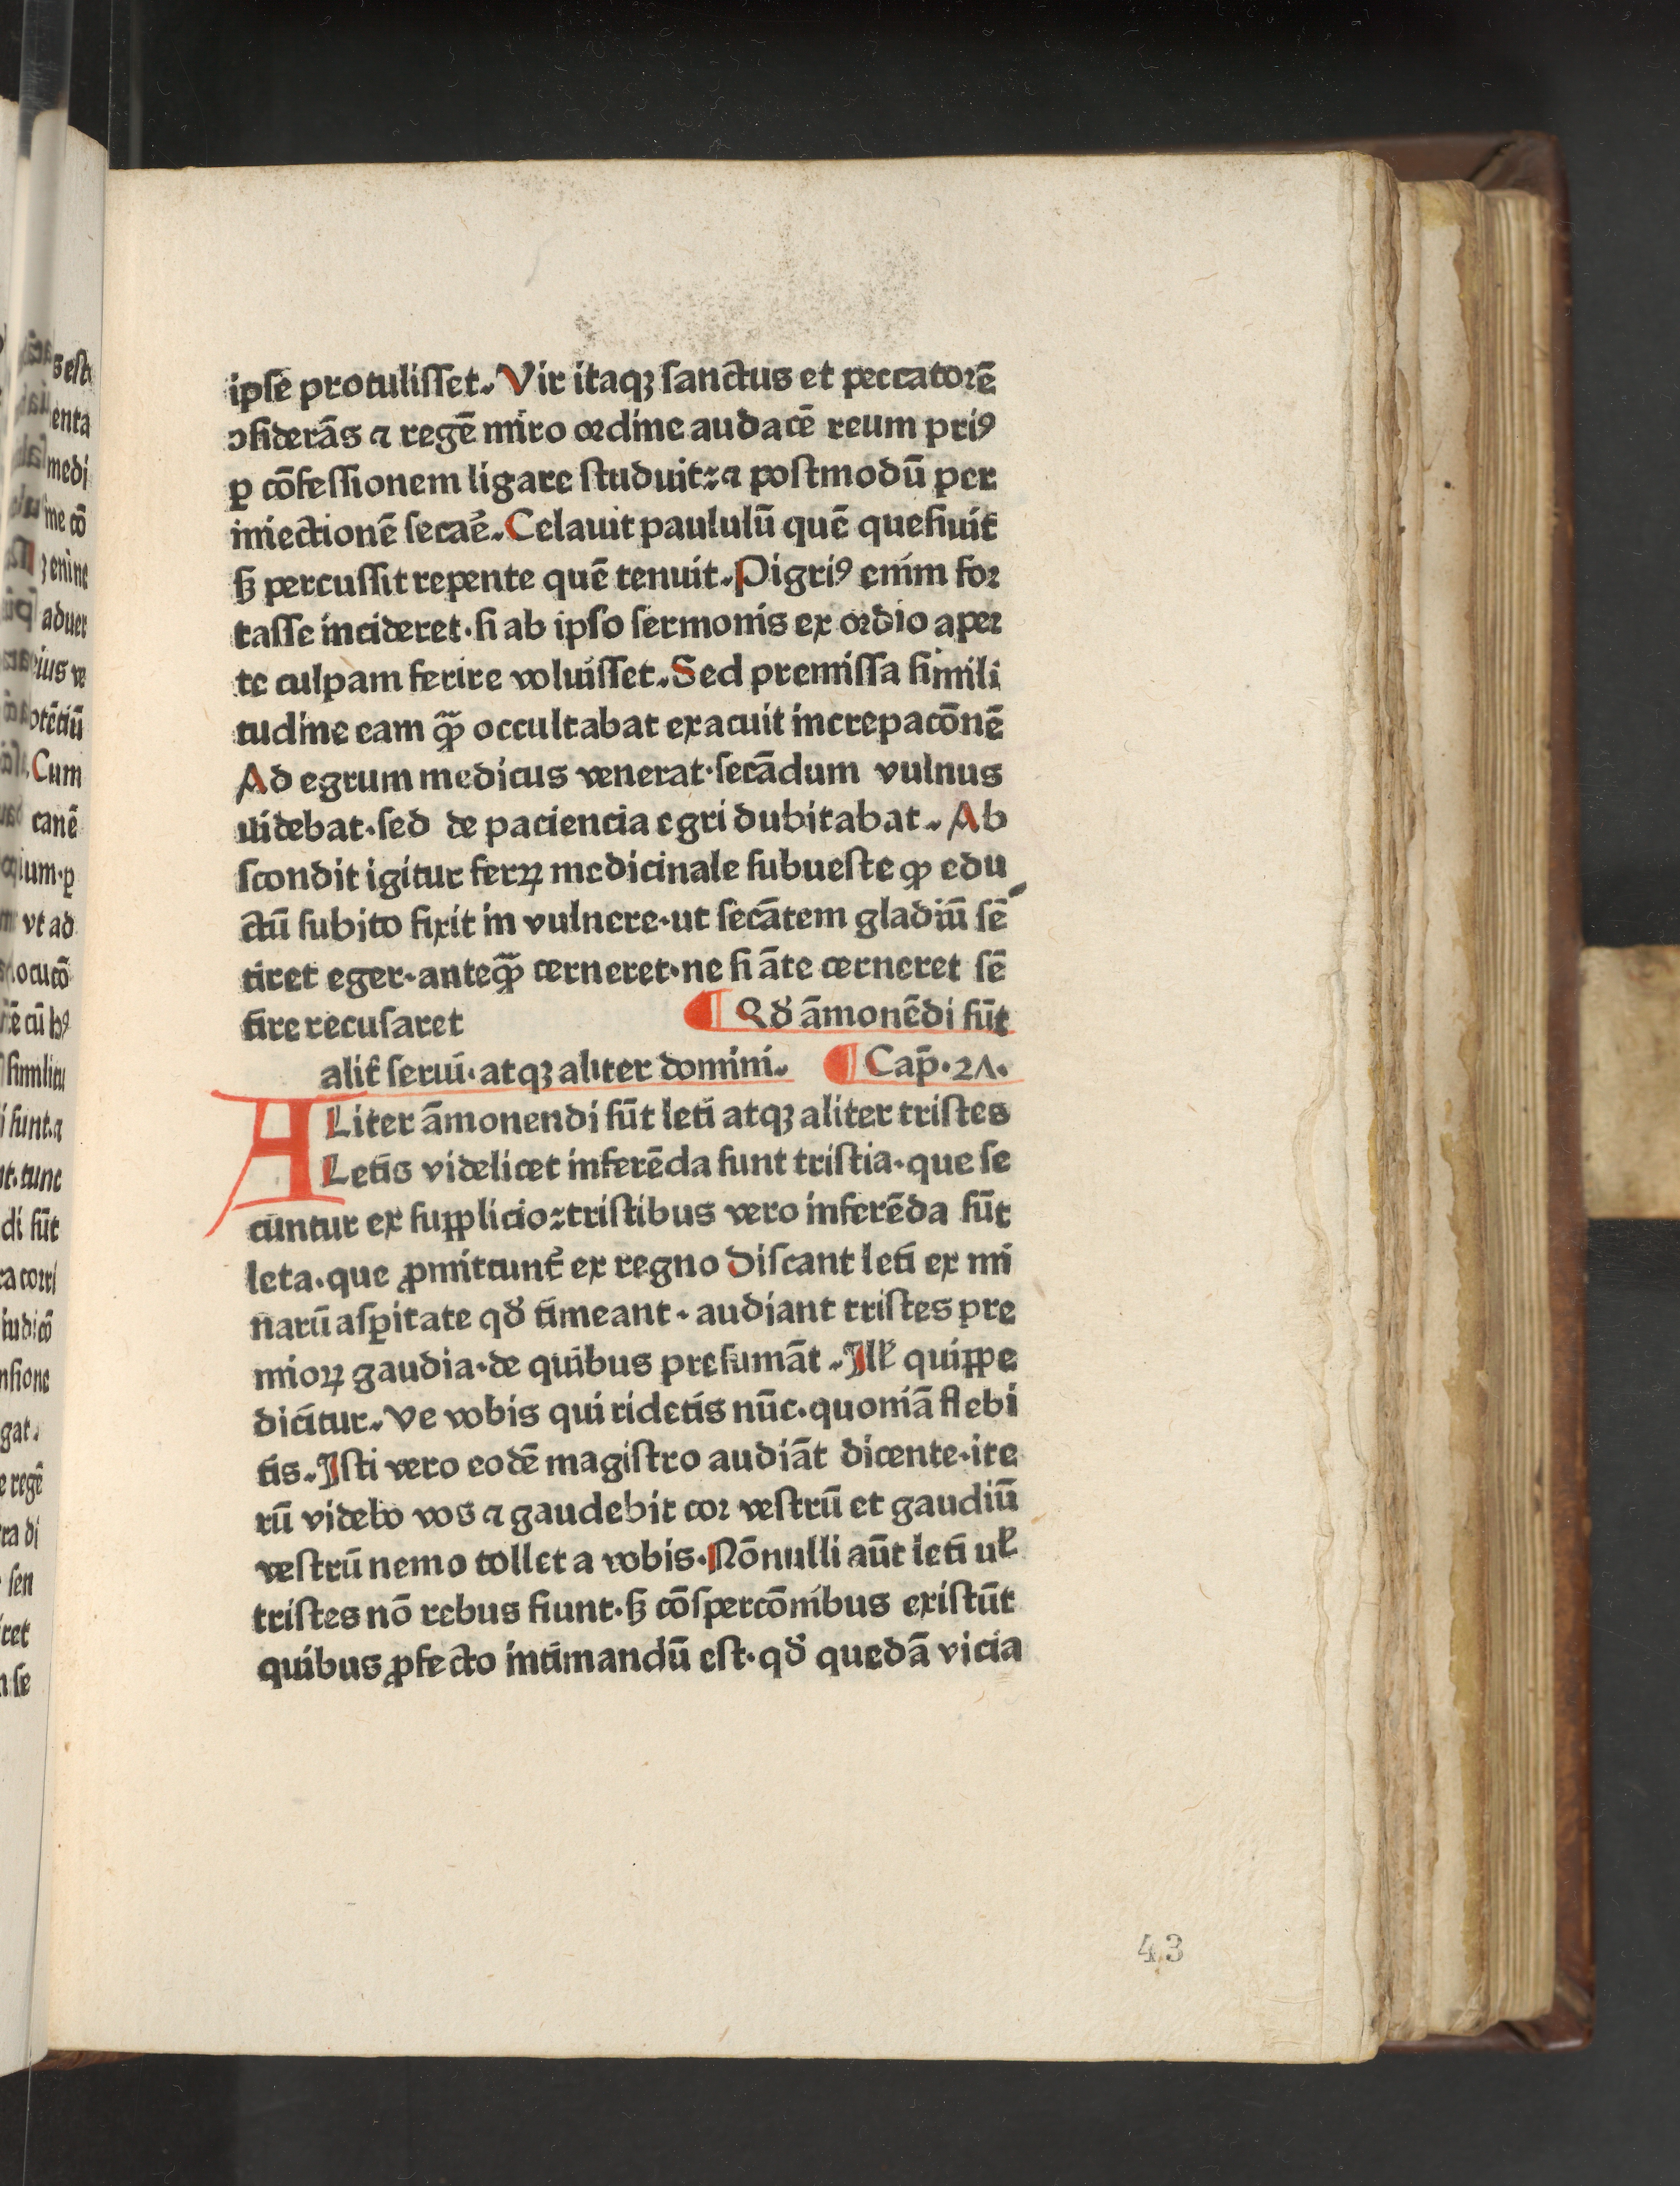 ipse protulisset. Vir itaqꝫ sanctus et peccatorē
ↄsiderās ⁊ regē miro ordine audacē reum priꝰ
ꝑ cōfessionem ligare studuit: ⁊ postmodū per
iniectionē secaē. Celauit paululū quē quesiuit
sꝫ percussit repente quē tenuit. Pigriꝰ enim for
tasse incideret. si ab ipso sermonis ex ordio aper
te culpam ferire voluisset. Sed premissa simili
tudine eam qᷓꝫ occultabat exacuit increpacōnē
Ad egrum medicus venerat. secādum vulnus
uidebat. sed de paciencia egri dubitabat. Ab
scondit igitur ferꝝ medicinale subueste qꝫ edu
ctū subito fixit in vulnere. ut secātem gladiū sē
tiret eger. anteqᷓꝫ cerneret. ne si āte cerneret sē
tire recusaret ¶ Qd̕ āmonēdi sūt
alit̕ serui. atqꝫ aliter domini. ¶ Cap̄. 2Ʌ.
ALiter āmonendi sūt leti atqꝫ aliter tristes
Letis videlicet inferēda sunt tristia. que se
cuntur ex supplicio: tristibus vero inferēda sūt
leta. que ꝓmittunt̕ ex regno Discant leti ex mi
narū asꝑitate qd̕ timeant. audiant tristes pre
mioꝝ gaudia. de quibus presumāt. Ill̕ quippe
dicitur. Ve vobis qui ridetis nūc. quoniā flebi
tis. Isti vero eodē magistro audiāt dicente. ite
rū videbo vos ⁊ gaudebit cor vestrū et gaudiū
vestrū nemo tollet a vobis. Nōnulli aūt leti ul̕
tristes nō rebus fiunt. sꝫ cōspercōnibus existūt
quibus ꝓfecto intimandū est. qd̕ quedā vicia
43